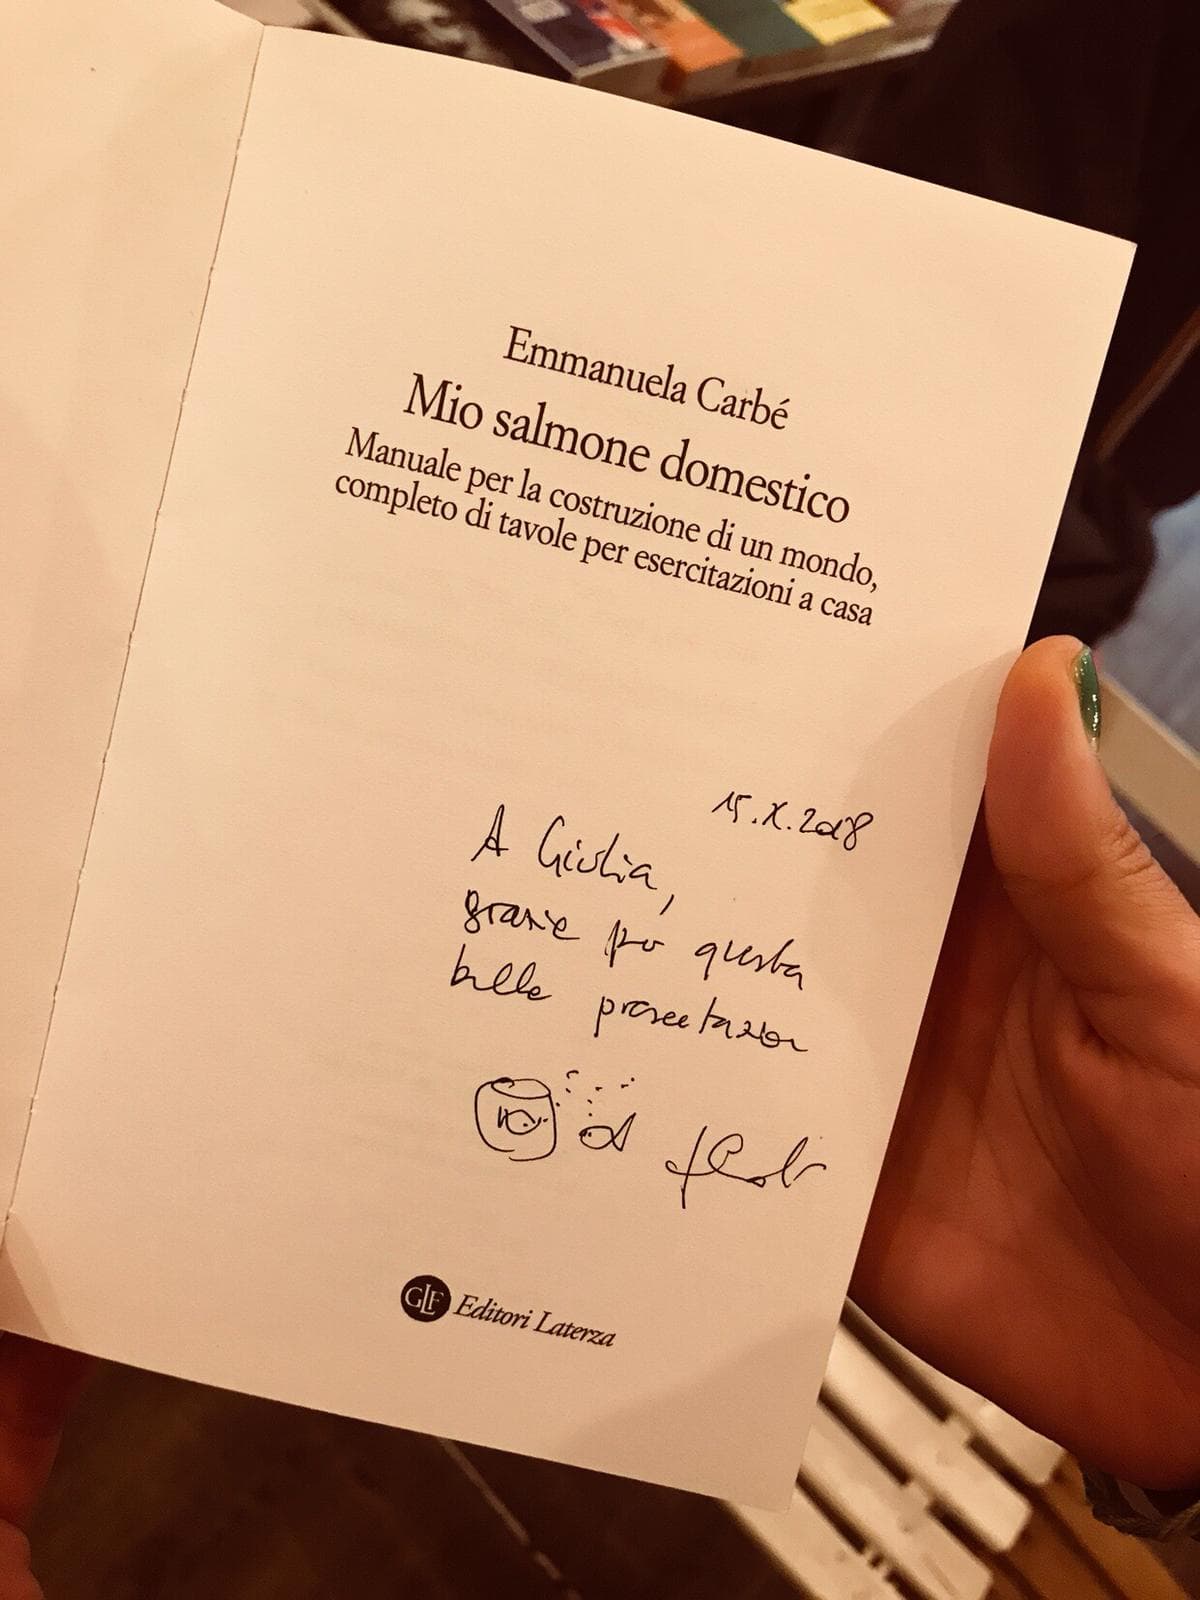 Emmanuela Carbé
Mio salmone domestico
Manuale per la costruzione di un mondo,
completo di tavole per esercitazioni a casa
15.X.2018
A Giulia,
grazie per questa
bella presentazione
GLF Editori Laterza